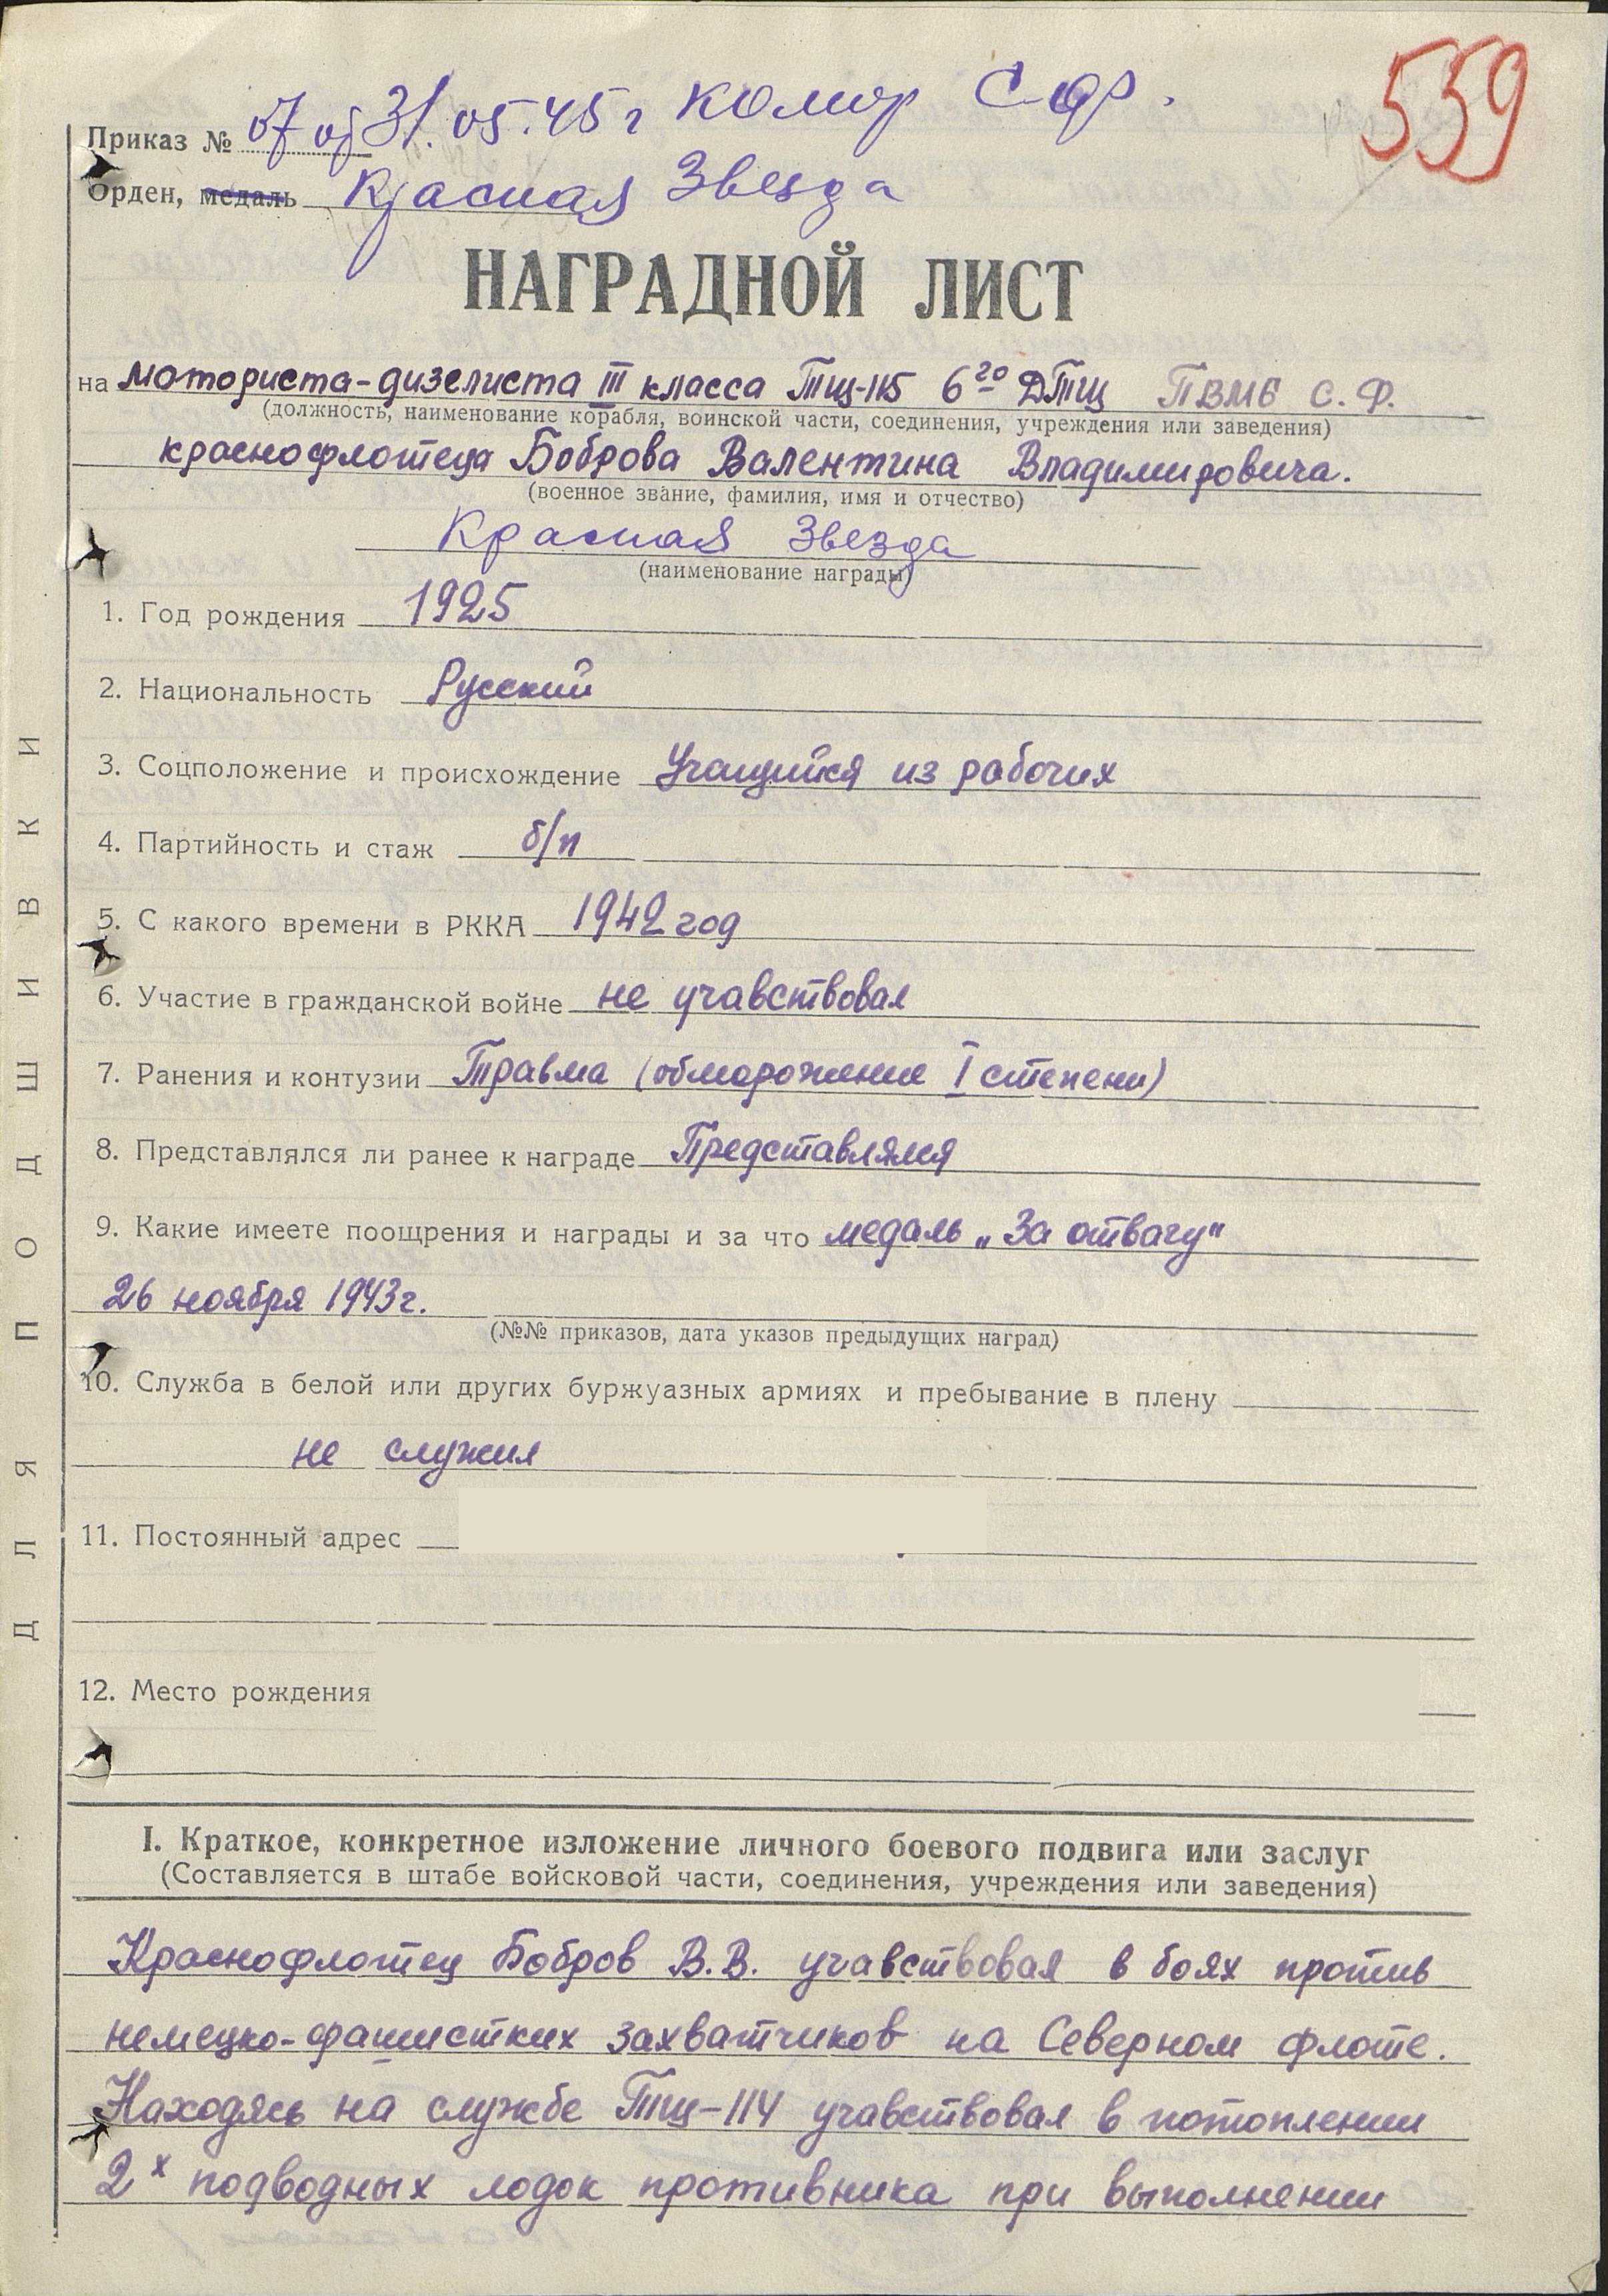 559
Приказ № 07 от 31.05.45 г комор С.Ф.
Орден, медаль Красная Звезда
НАГРАДНОЙ ЛИСТ
на моториста-дизелиста III класса Тщ-115 6го ДТЩ ПВМБ С.Ф.
(должность, наименование корабля, воинской части, соединения, учреждения или заведения)
краснофлотеца Боброва Валентина Владимировича.
(военное звание, фамилия, имя и отчество)
Красная Звезда
(наименование награды)
1. Год рождения 1925
2. Национальность Русский
3. Соцположение и происхождение Учащийся из рабочих
4. Партийность и стаж б/п
5. С какого времени в РККА 1942 год
6. Участие в гражданской войне не учавствовал
7. Ранения и контузии Травма (обморожение I степени)
8. Представлялся ли ранее к награде Представлялся
9. Какие имеете поощрения и награды и за что медаль „За отвагу"
26 ноября 1943г.
(№№ приказов, дата указов предыдущих наград)
10. Служба в белой или других буржуазных армиях и пребывание в плену
не служил
11. Постоянный адрес
12. Место рождения
I. Краткое, конкретное изложение личного боевого подвига или заслуг
(Составляется в штабе войсковой части, соединения, учреждения или заведения)
Краснофлотец Бобров В.В. учавствовал в боях против
немецко-фашистких захватчиков на Северном флоте.
Находясь на службе Тщ-114 учавствовал в потоплении
2х подводных лодок противника при выполнении
ДЛЯ ПОДШИВКИ